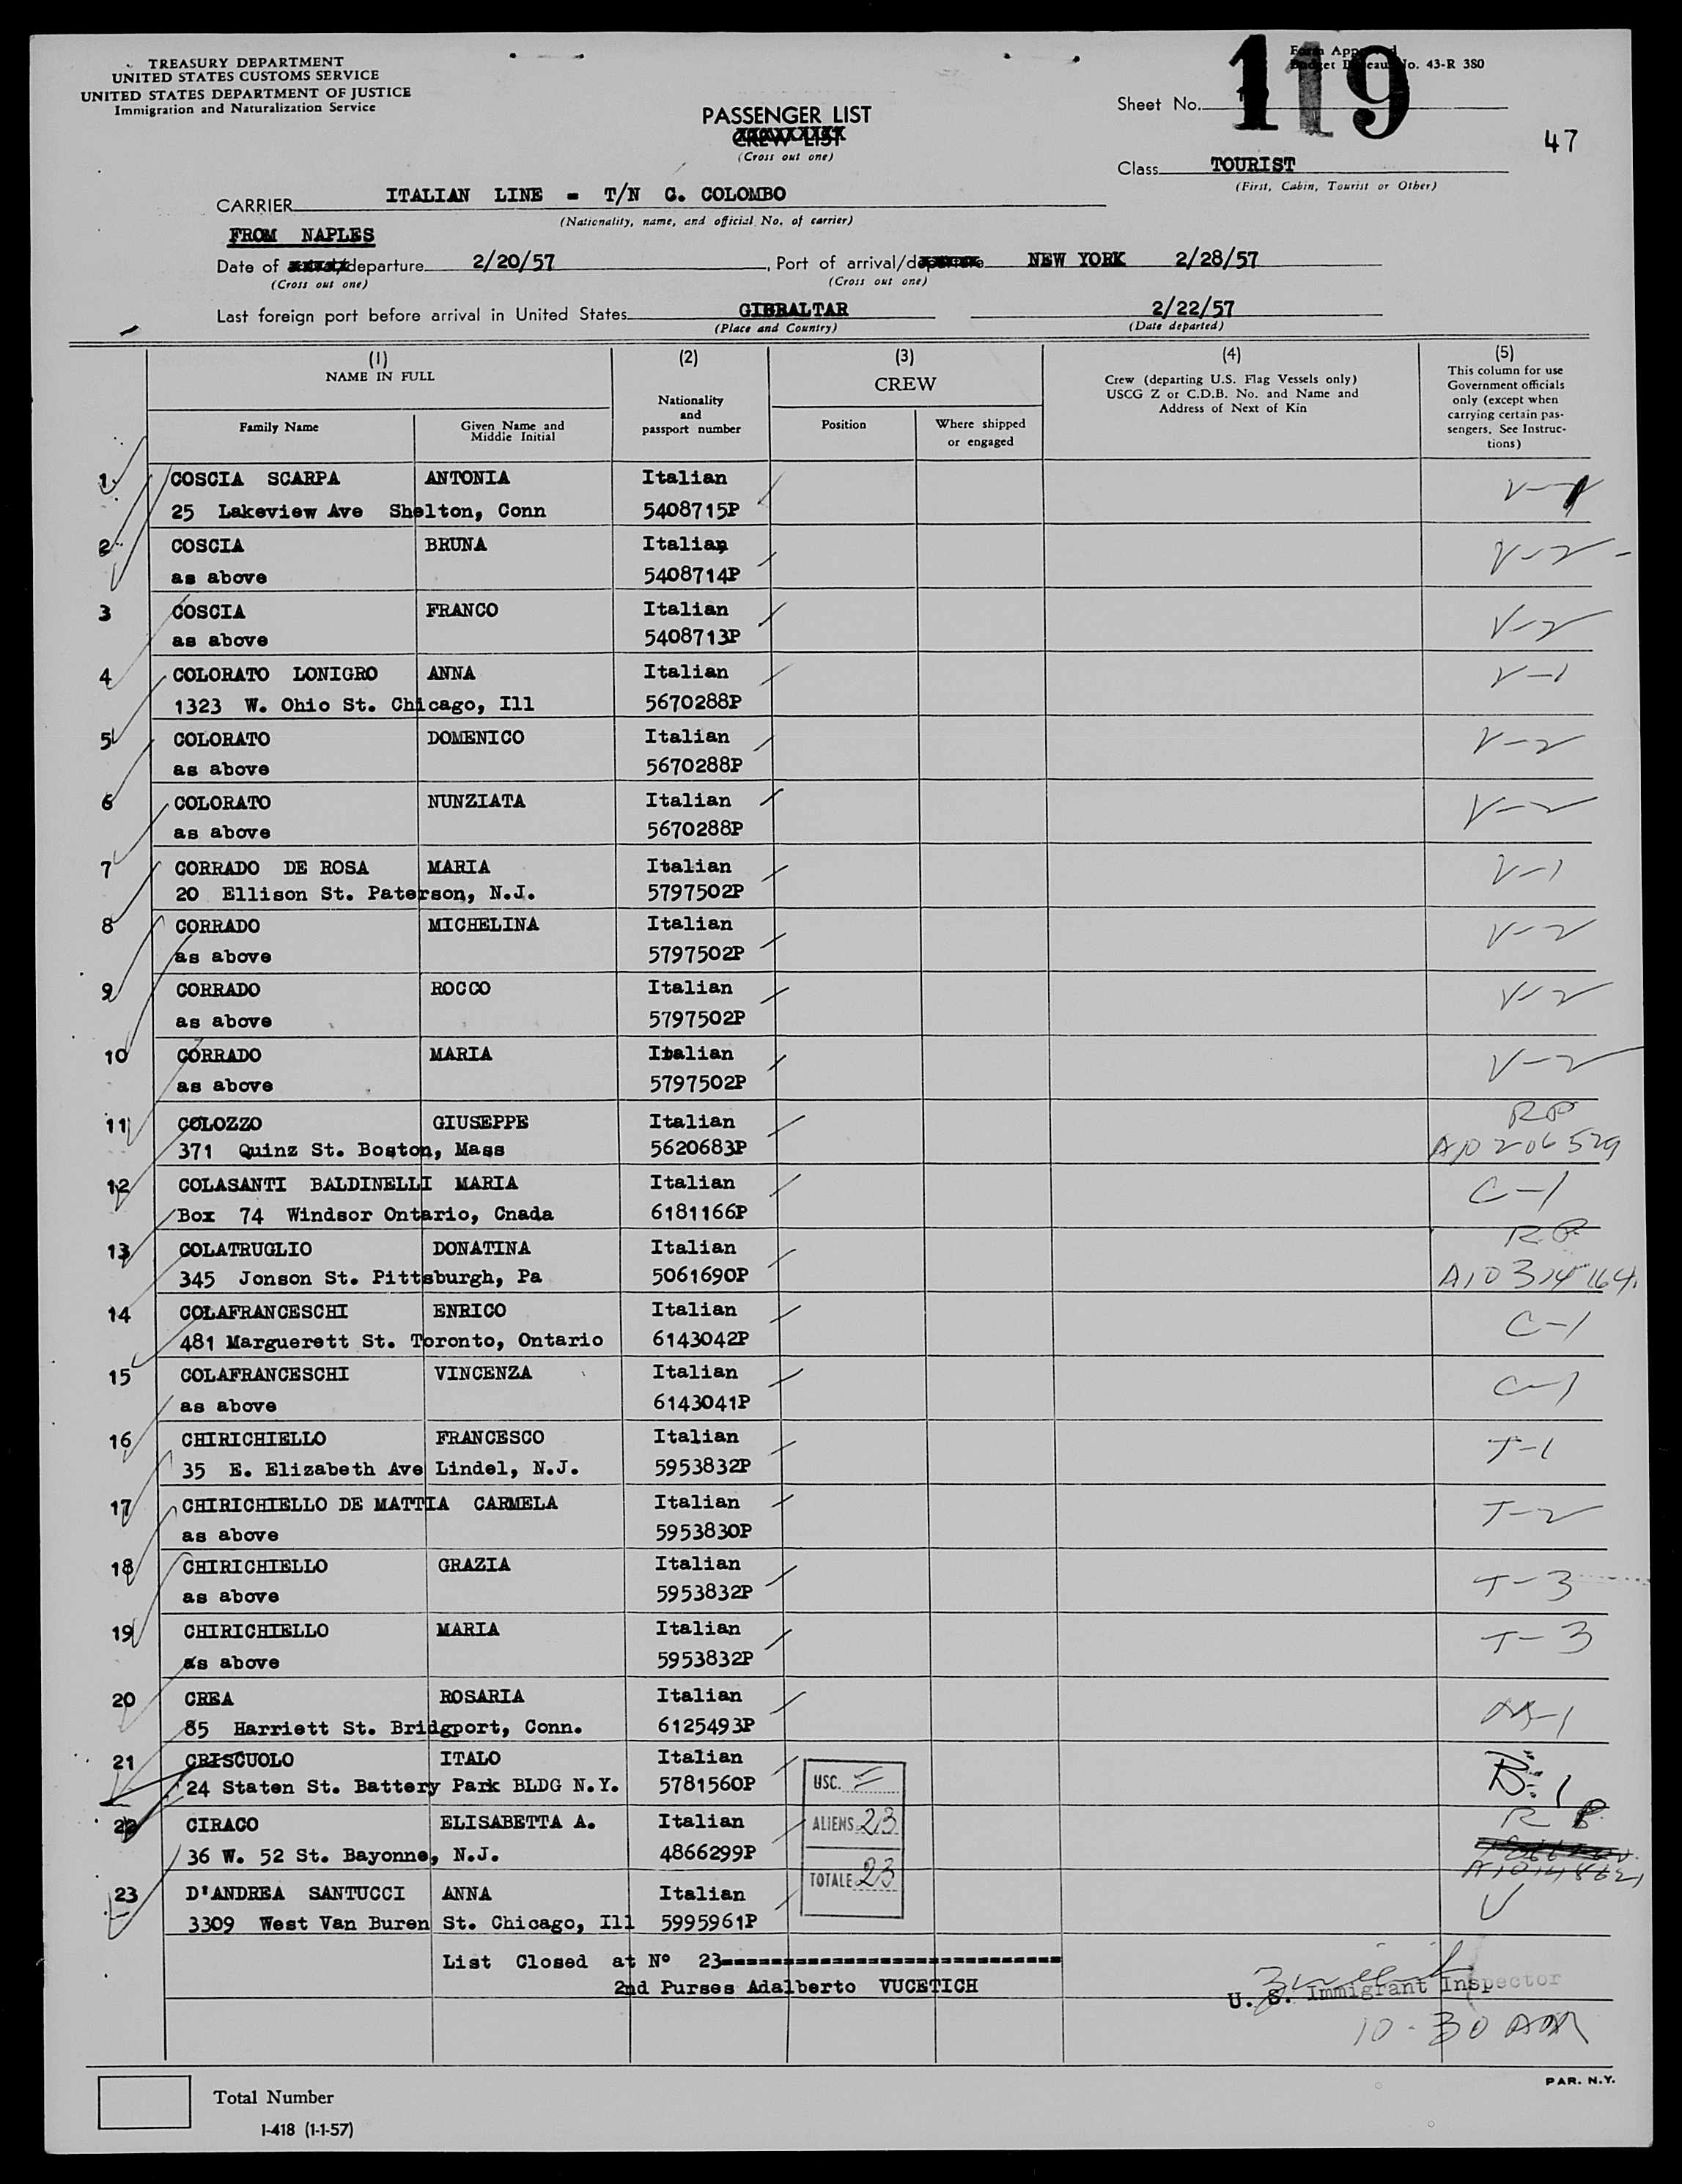 TREASURY DEPARTMENT
UNITED STATES CUSTOMS SERVICE
UNITED STATES DEPARTMENT OF JUSTICE
Immigration and Naturalization Service
Form Approved
Budget Bureau No. 43-R 380
Sheet No. 119
47
PASSENGER LIST
CREW LIST
(Cross out one)
Class TOURIST
(First, Cabin, Tourist or Other)
CARRIER ITALIAN LINE - T/N C. COLOMBO
(Nationality, name, and official No. of carrier)
FROM NAPLES
Date of arrival/departure 2/20/57, Port of arrival/departure NEW YORK 2/28/57
(Cross out one) (Cross out one)
Last foreign port before arrival in United States GIBRALTAR 2/22/57
(Place and Country) (Date departed)
(1) (2) (3) (4) (5)
NAME IN FULL
Family Name
Given Name and Middle Initial
Nationality and passport number
CREW
Position
Where shipped or engaged
Crew (departing U.S. Flag Vessels only)
USCG Z or C.D.B. No. and Name and
Address of Next of Kin
This column for use
Government officials
only (except when
carrying certain pas-
sengers. See Instruc-
tions)
1 COSCIA SCARPA ANTONIA Italian V-1
25 Lakeview Ave Shelton, Conn 5408715P
2 COSCIA BRUNA Italian V-2
as above 5408714P
3 COSCIA FRANCO Italian V-2
as above 5408713P
4 COLORATO LONIGRO ANNA Italian V-1
1323 W. Ohio St. Chicago, Ill 5670288P
5 COLORATO DOMENICO Italian V-2
as above 5670288P
6 COLORATO NUNZIATA Italian V-2
as above 5670288P
7 CORRADO DE ROSA MARIA Italian V-1
20 Ellison St. Paterson, N.J. 5797502P
8 CORRADO MICHELINA Italian V-2
as above 5797502P
9 CORRADO ROCCO Italian V-2
as above 5797502P
10 CORRADO MARIA Italian V-2
as above 5797502P
11 COLOZZO GIUSEPPE Italian RP
371 Quinz St. Boston, Mass 5620683P A10 206 529
12 COLASANTI BALDINELLI MARIA Italian C-1
Box 74 Windsor Ontario, Cnada 6181166P
13 COLATRUGLIO DONATINA Italian RP
345 Jonson St. Pittsburgh, Pa 5061690P
14 COLAFRANCESCHI ENRICO Italian C-1
481 Marguerett St. Toronto, Ontario 6143042P
15 COLAFRANCESCHI VINCENZA Italian C-1
as above 6143041P
16 CHIRICHIELLO FRANCESCO Italian T-1
35 E. Elizabeth Ave Lindel, N.J. 5953832P
17 CHIRICHIELLO DE MATTIA CARMELA Italian T-2
as above 5953830P
18 CHIRICHIELLO GRAZIA Italian T-3
as above 5953832P
19 CHIRICHIELLO MARIA Italian T-3
as above 5953832P
20 CREA ROSARIA Italian M-1
85 Harriett St. Bridgport, Conn. 6125493P
21 CRISCUOLO ITALO Italian B-1
24 Staten St. Battery Park BLDG N.Y. 5781560P
22 CIRACO ELISABETTA A. Italian RP
36 W. 52 St. Bayonne, N.J. 4866299P
23 D'ANDREA SANTUCCI ANNA Italian V
3309 West Van Buren St. Chicago, Ill 5995961P
USC.
ALIENS 23
TOTALE 23
List Closed at Nº 23--------------------------
2nd Purses Adalberto VUCETICH
U. S. Immigrant Inspector
10-30 AM
Total Number
I-418 (1-1-57)
PAR. N.Y.